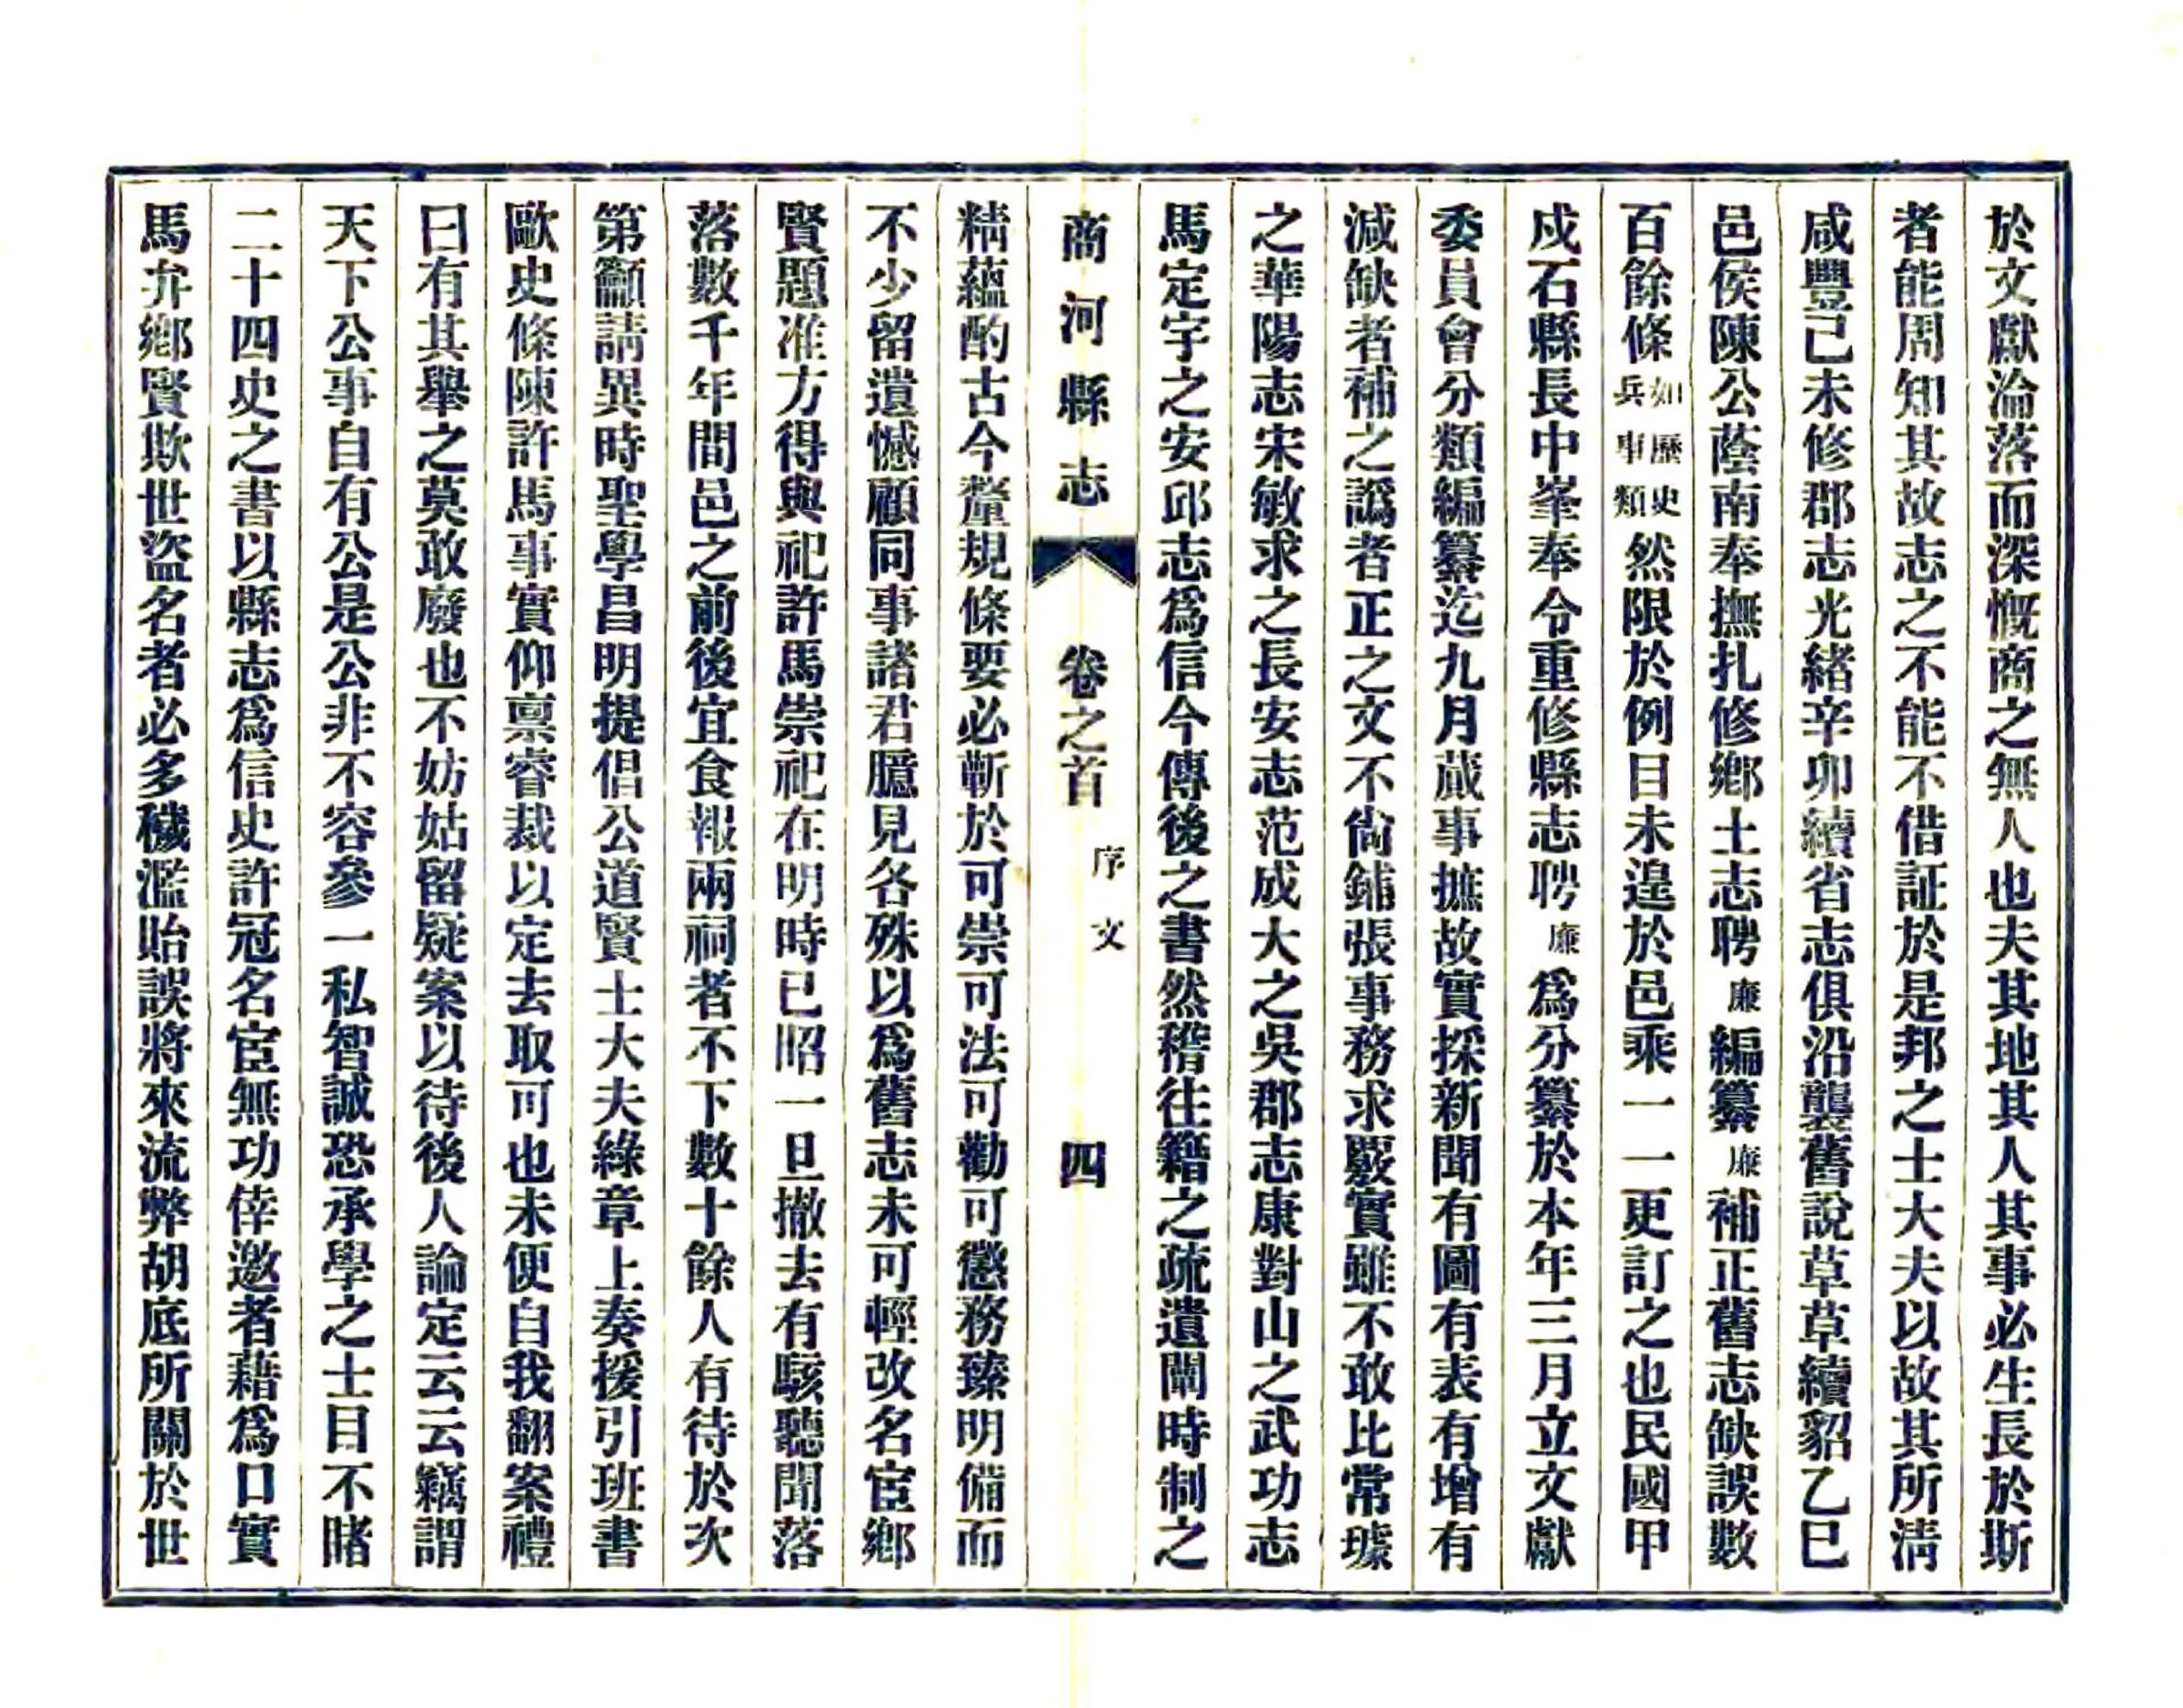 於文獻淪落而深慨商之無人也夫其地其人其事必生長於斯
者能周知其故志之不能不借証於是邦之士大夫以故其所清
咸豐己未修郡志光緒辛卯續省志俱沿襲舊說草草續貂乙巳
邑侯陳公蔭南奉撫扎修鄉土志聘廉編纂廉補正舊志缺誤數
百餘條如歷史兵事類然限於例目未遑於邑乘一一更訂之也民國甲
戍石縣長中峯奉令重修縣志聘廉為分纂於本年三月立文獻
委員會分類編纂迄九月蕆事摭故實採新聞有圖有表有增有
減缺者補之譌者正之文不尙鋪張事務求覈實雖不敢比常璩
之華陽志宋敏求之長安志范成大之吳郡志康對山之武功志
馬定宇之安邱志爲信今傳後之書然稽往籍之疏遺闡時制之
商河縣志 卷之首 序文 四
精蘊酌古今釐規條要必蘄於可崇可法可勸可懲務臻明備而
不少留遺憾顧同事諸君臆見各殊以爲舊志未可輕改名宦鄉
賢題准方得與祀許馬崇祀在明時已昭一旦撤去有駭聽聞落
落數千年間邑之前後宜食報兩祠者不下數十餘人有待於次
第籲請異時聖學昌明提倡公道賢士大夫綠章上奏援引班書
歐史條陳許馬事實仰稟睿裁以定去取可也未便自我翻案禮
曰有其舉之莫敢廢也不妨姑留疑案以待後人論定云云竊謂
天下公事自有公是公非不容參一私智誠恐承學之士目不睹
二十四史之書以縣志爲信史許冠名宦無功倖邀者藉爲口實
馬弁鄉賢欺世盜名者必多穢濫貽誤將來流弊胡底所關於世